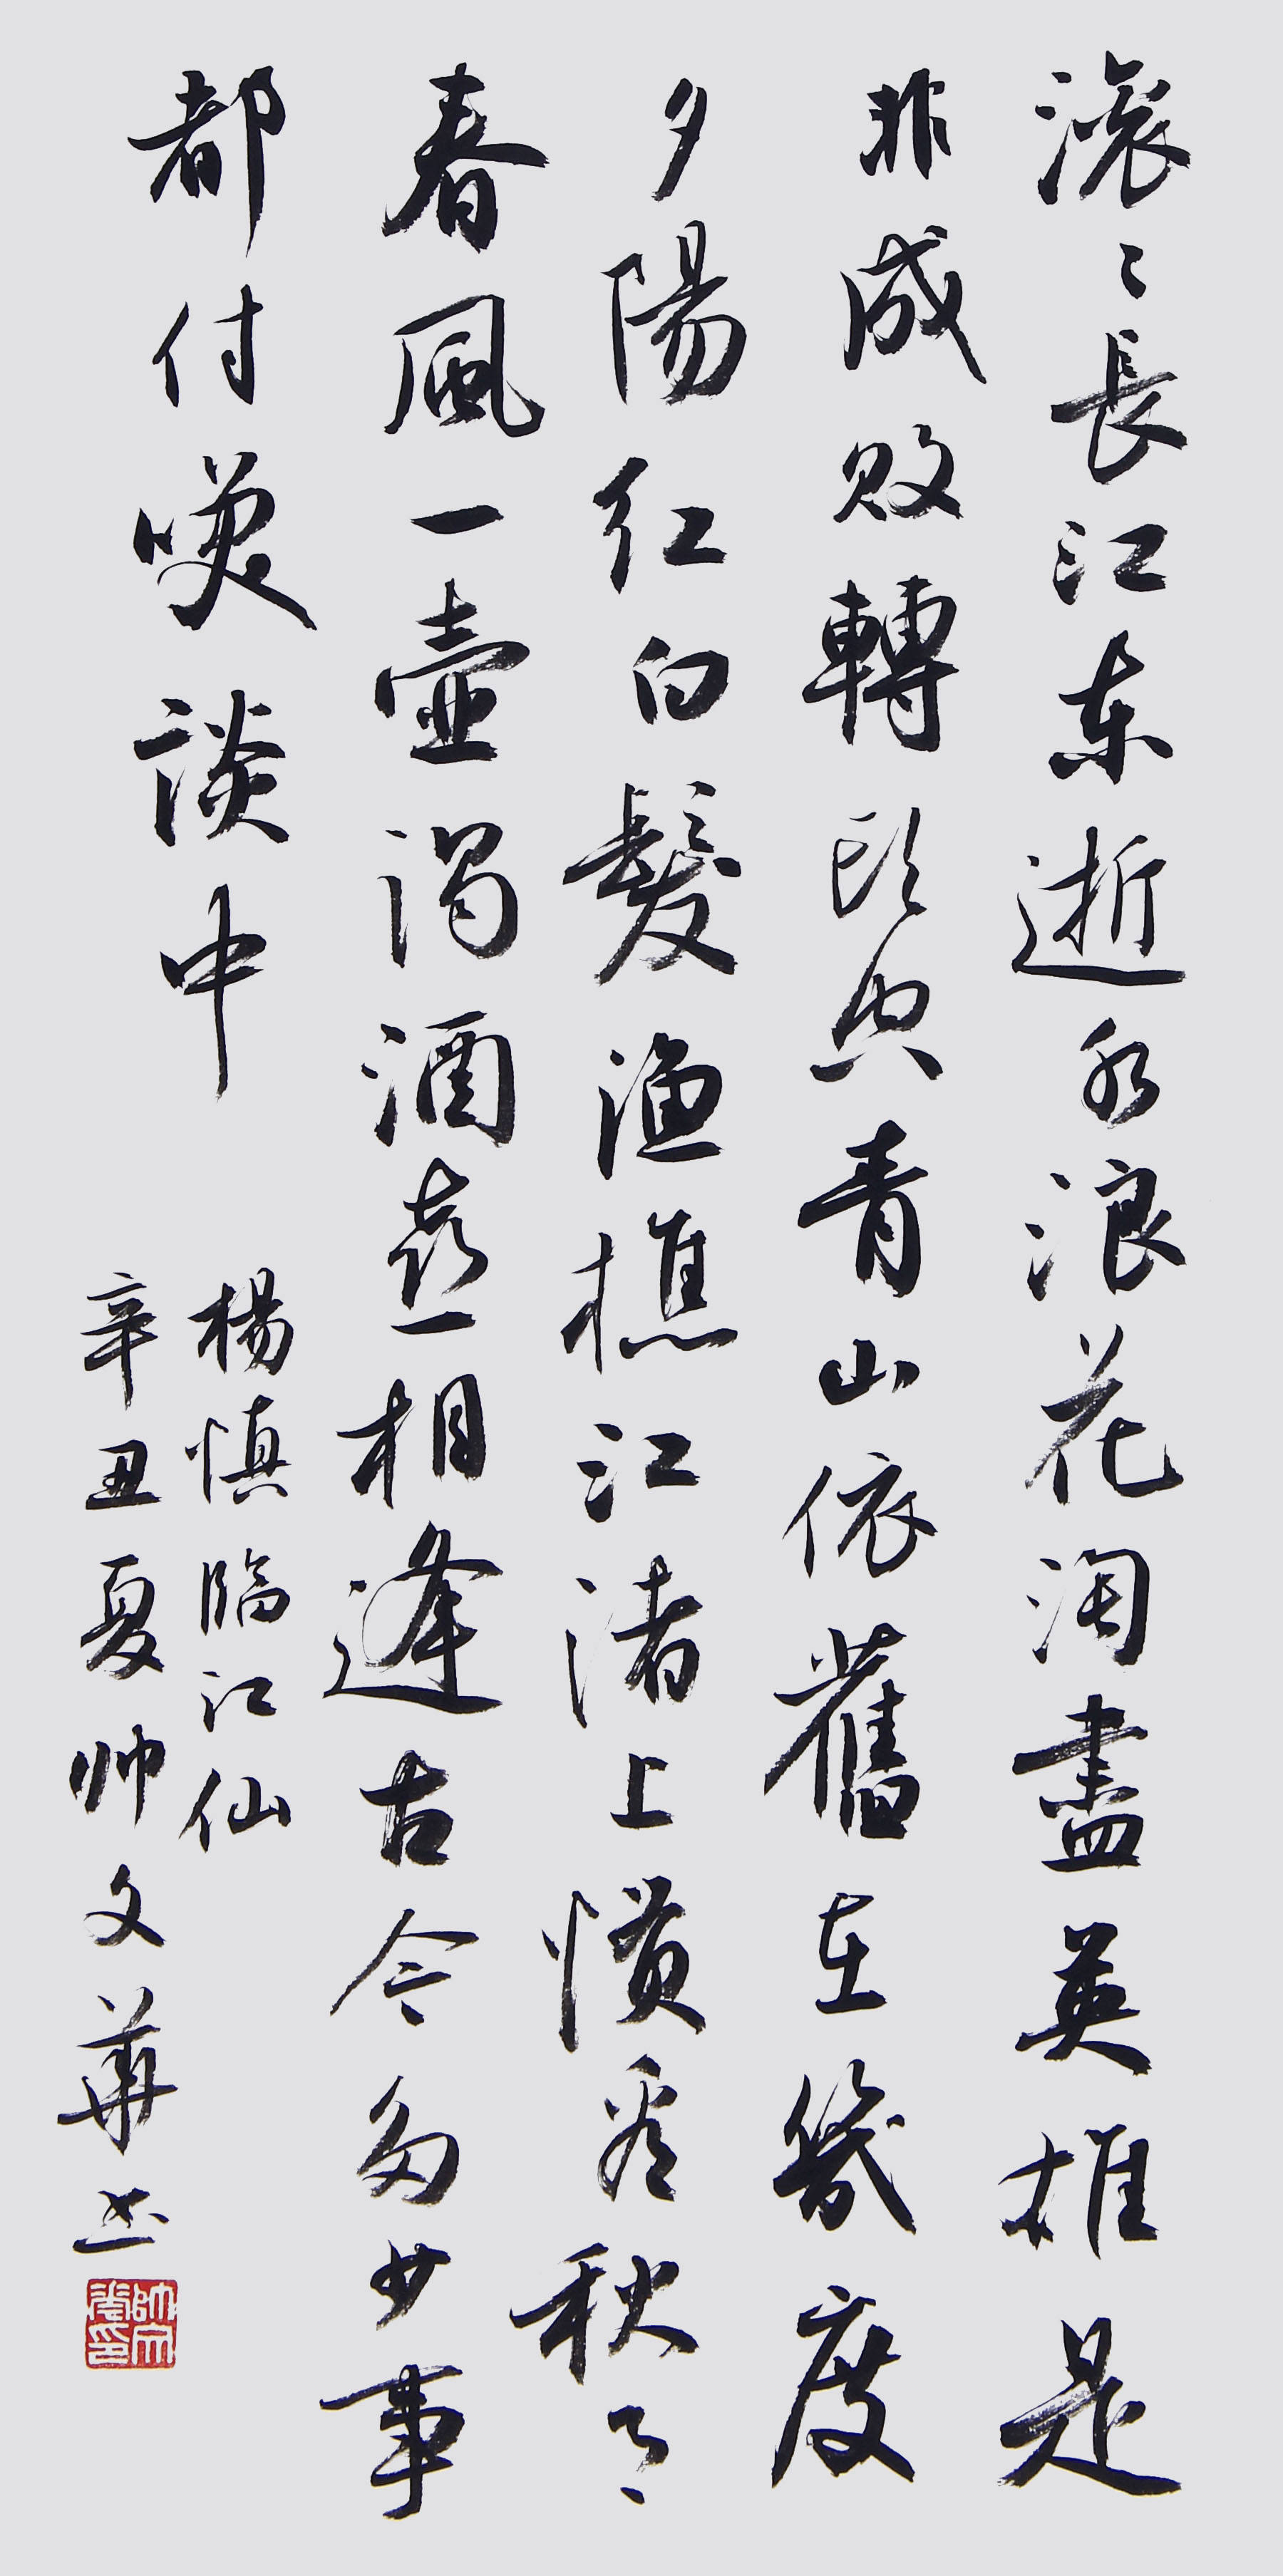 滚々長江东逝水浪花淘盡英雄是
非成敗轉头空青山依舊在幾度
夕陽红白髮渔樵江渚上慣看秋月
春風一壺濁酒喜相逢古今多少事
都付㗛談中
楊慎臨江仙
辛丑夏帅文華书
帥文華印